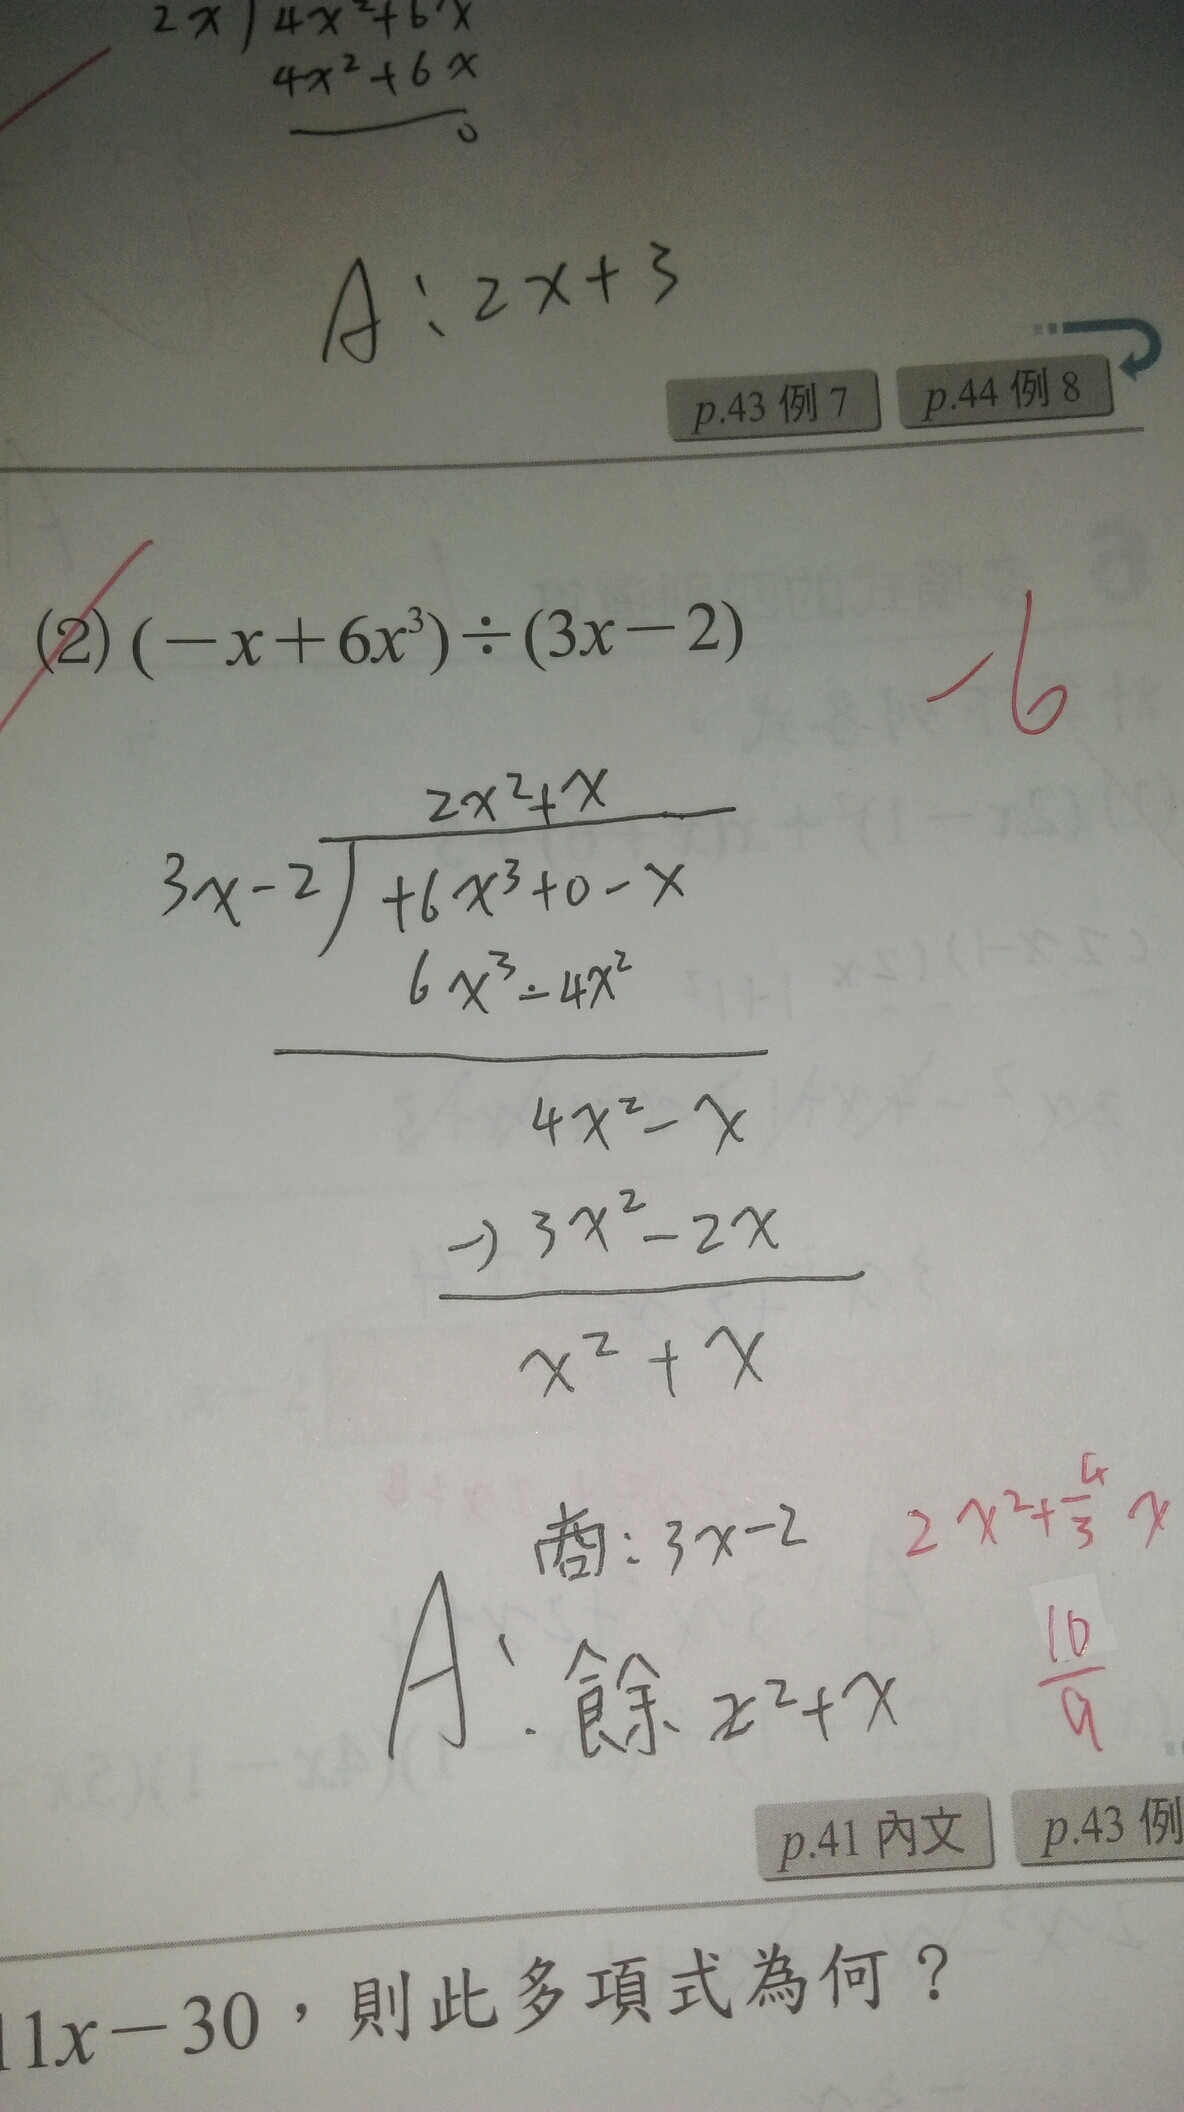 2x)4x²+6x
4x²+6x
0
A:2x+3
p.43 例 7 p.44 例 8
(2) (−x+6x³)÷(3x−2)
-6
2x²+x
3x-2)+6x³+0-x
6x³-4x²
4x²-x
-) 3x²-2x
x²+x
商:3x-2 2x²+4/3 x
A:餘 x²+x 10/9
p.41 內文 p.43 例
11x−30，則此多項式為何？